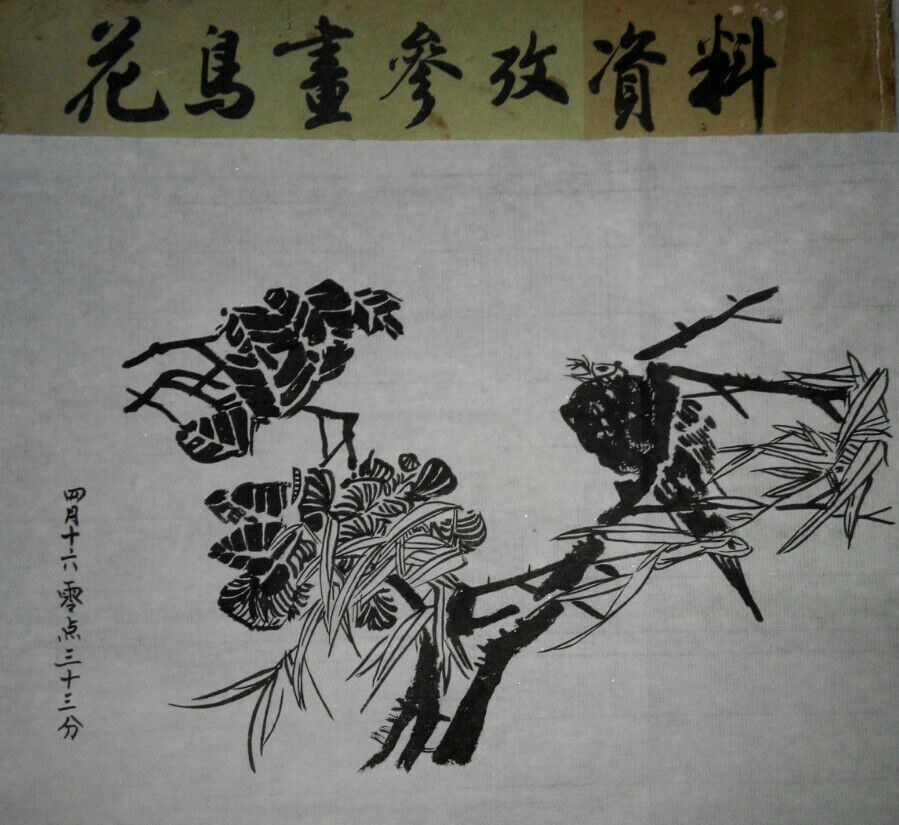 花鳥畫參攷資料
四月十六 零点三十三分